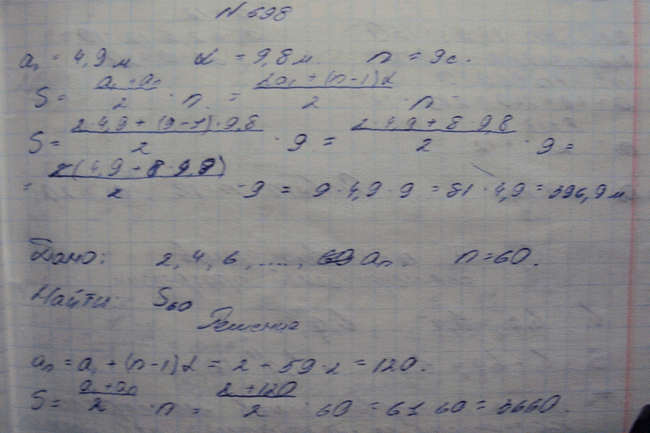 N 698
a₁ = 4,9 м d = 9,8 м n = 9 с.
S = (a₁ + aₙ)/2 · n = (2a₁ + (n-1)d)/2 · n
S = (2·4,9 + (9-1)·9,8)/2 · 9 = (2·4,9 + 8·9,8)/2 · 9 =
= 2(4,9 + 8·9,9)/2 · 9 = 9·4,9·9 = 81·4,9 = 396,9 м
Дано: 2, 4, 6, ....., aₙ. n=60.
Найти: S₆₀
Решение
aₙ = a₁ + (n-1)d = 2 + 59·2 = 120.
S = (a₁ + aₙ)/2 · n = (2 + 120)/2 · 60 = 61 60 = 3660.